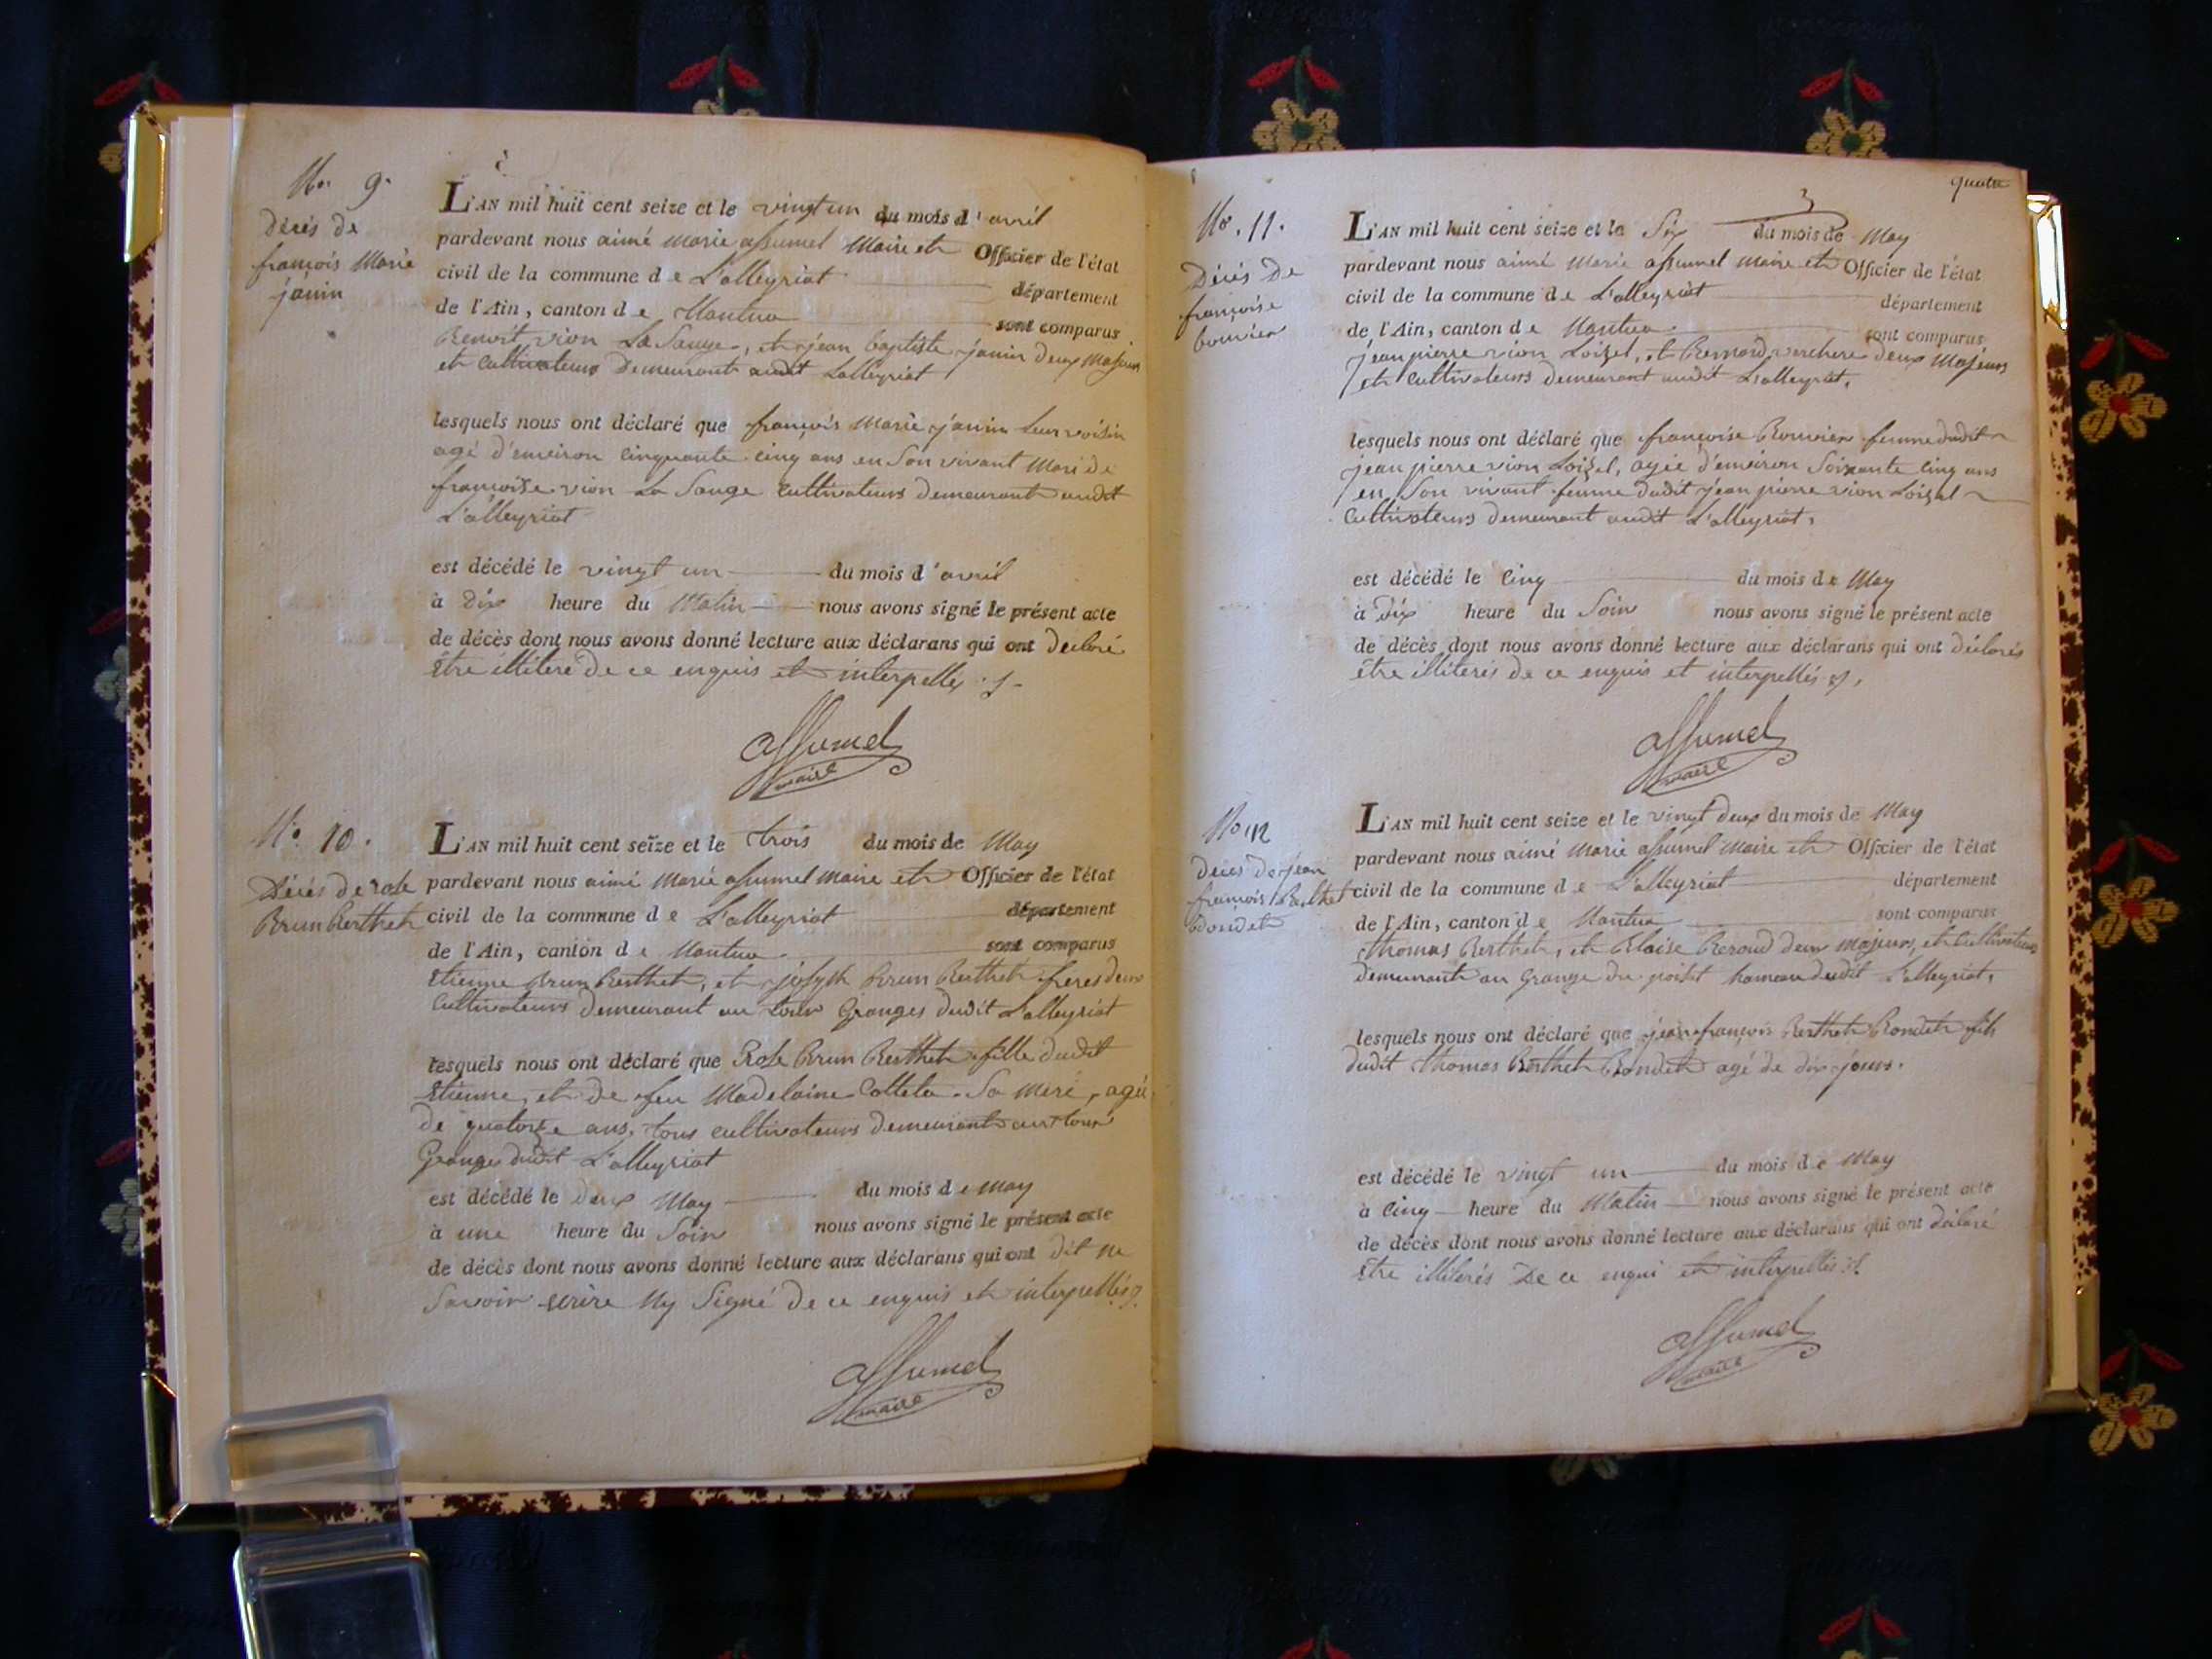 No. 9.
Décés de
françois Marie
janin
L'AN mil huit cent seize et le vingt un du mois d'avril
pardevant nous aimé Marie assumel Maire et Officier de l'état
civil de la commune de L'alleyriat département
de l'Ain, canton de Nantua sont comparus
Benoit vion La Sauge, et jean baptiste janin deux Majeurs
et Cultivateurs Demeurant audit Lalleyriat
lesquels nous ont déclaré que françois Marie janin leur voisin
agé d'environ cinquante cinq ans en Son vivant Mari de
françoise vion La Sauge cultivateurs demeurant audit
L'alleyriat
est décédé le vingt un du mois d'avril
à Dix heure du Matin nous avons signé le présent acte
de décès dont nous avons donné lecture aux déclarans qui ont declaré
Être illiteré De ce enquis et interpellés
assumel
maire
No. 10.
Décés de rose
Brun Berthet
L'AN mil huit cent seize et le trois du mois de May
pardevant nous aimé Marie assumel maire et Officier de l'état
civil de la commune de L'alleyriat département
de l'Ain, canton de Nantua sont comparus
Etienne Brun Berthet, et joseph Brun Berthet freres deux
Cultivateurs demeurant au Granges dudit L'alleyriat
lesquels nous ont déclaré que Rose Brun Berthet fille dudit
Etienne, et de feu Madelaine Colleta Sa mere, agée
de quatorze ans, tous cultivateurs demeurants
Granges dudit L'alleyriat
est décédé le deux May du mois de may
à une heure du Soir nous avons signé le présent acte
de décès dont nous avons donné lecture aux déclarans qui ont dit ne
Savoir ecrire Ny Signé de ce enquis et interpellés
assumel
maire
quatre
3
No. 11.
Décés De
françoise
bouvier
L'AN mil huit cent seize et le Six du mois de May
pardevant nous aimé Marie assumel maire et Officier de l'état
civil de la commune de L'alleyriat département
de l'Ain, canton de Nantua sont comparus
jean pierre vion Loisel, et Bernard verchere deux Majeurs
et cultivateurs demeurant audit L'alleyriat,
lesquels nous ont déclaré que françoise Bouvier femme dudit
jean pierre vion Loisel, agée d'environ Soixante cinq ans
en Son vivant femme dudit jean pierre vion Loisel
Cultivateurs demeurant audit L'alleyriat,
est décédé le Cinq du mois de May
à Dix heure du Soir nous avons signé le présent acte
de décès dont nous avons donné lecture aux déclarans qui ont déclarés
être illiterés de ce enquis et interpellés
assumel
maire
No. 12
Décés de jean
françois Berthet
Bondet
L'AN mil huit cent seize et le vingt deux du mois de May
pardevant nous aimé Marie assumel Maire et Officier de l'état
civil de la commune de L'alleyriat département
de l'Ain, canton de Nantua sont comparus
Thomas Berthet, et Blaise Beroud deux majeurs, et Cultivateurs
demeurant au Grange du poiset hameau dudit L'alleyriat,
lesquels nous ont déclaré que jean françois Berthet Bondet fils
dudit Thomas Berthet Bondet agé de dix jours.
est décédé le vingt un du mois de May
à Cinq heure du Matin nous avons signé le présent acte
de décès dont nous avons donné lecture aux déclarans qui ont déclaré
Etre illiterés De ce enqui et interpellés
assumel
maire